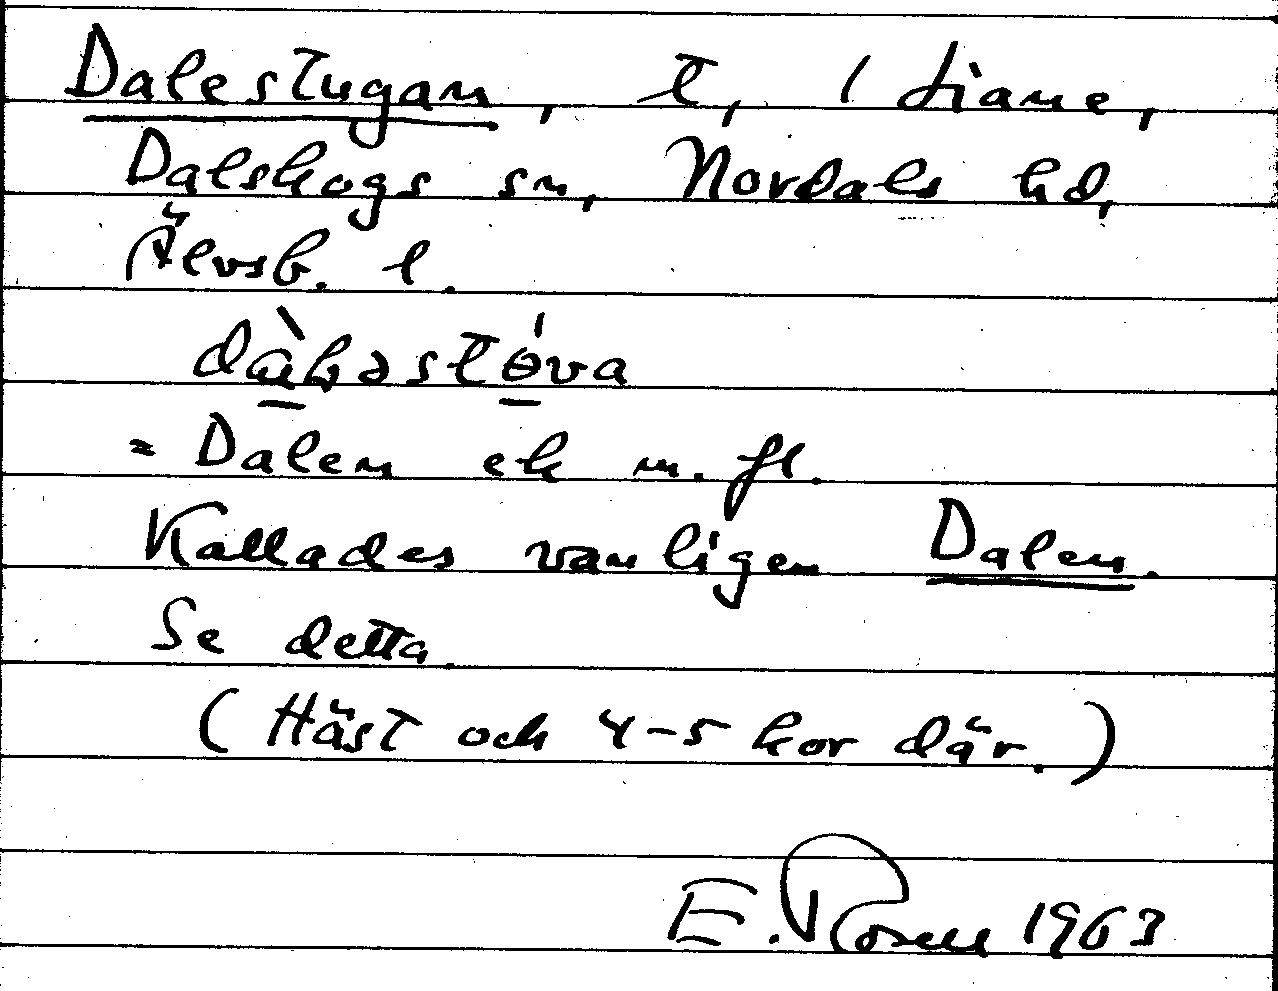 Dalestugan, t, i Liane,
Dalskogs sn, Nordals hd,
Älvsb. l.
= Dalen ek m. fl.
Kallades vanligen Dalen.
Se detta.
(Häst och 4-5 kor där.)
E. Rosell 1963